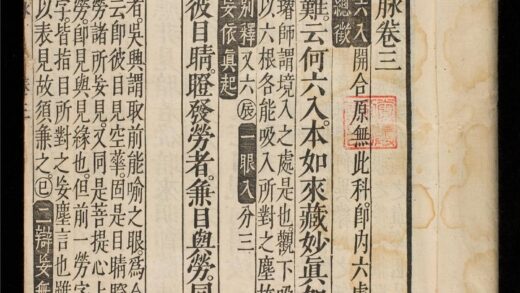 脉卷三
六入 開合原無此科。即內六處
總徵
難。云何六入。本如來藏妙真如
璿師謂境入之處是也。觀下吸
以六根各能吸入所對之塵故
別釋又六 辰 一眼入 分三
妄依眞起
彼目睛。瞪發勞者。兼目與勞。同
者。吳興謂取前能喻之眼。爲今
云即彼目見空華。固是目睛瞪
勞諸所妄見。又同是菩提心上
勞。即見與見緣也。但前一勞字
字。皆指目所對之妄塵言也。雖
以表見故須兼之。巳 二辯妄無